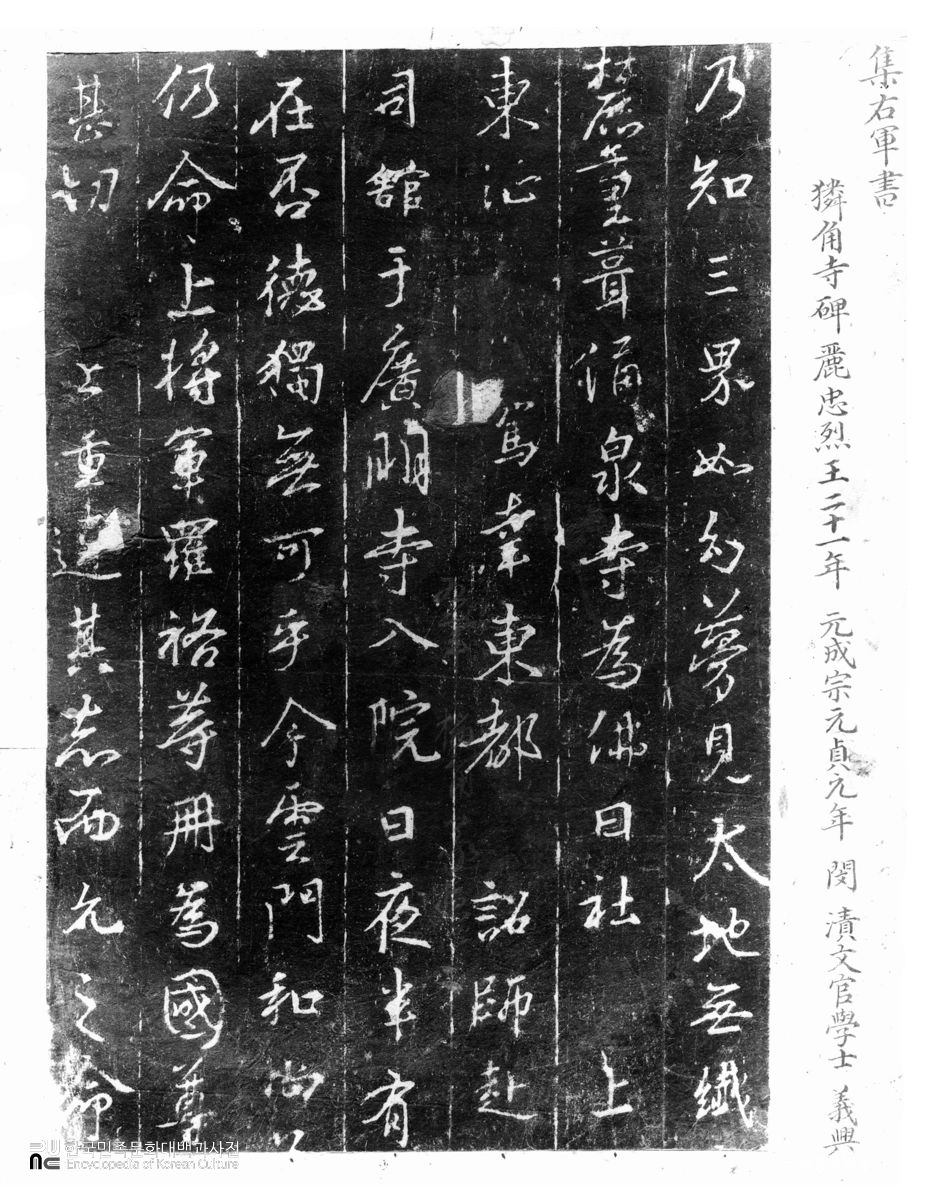 集右軍書
獜角寺碑 麗忠烈王二十一年 元成宗元貞元年 閔漬文官學士 義興
乃知三界如幻夢見太地無纖
麓重葺湧泉寺為佛日社 上
東征 駕幸東都 詔師赴
司舘于廣明寺入院日夜半有
在否德獨無可乎今雲門和尚
仍命上將軍羅裕等冊為國尊
甚切 上重違其志而允之命
한국민족문화대백과사전
Encyclopedia of Korean Culture